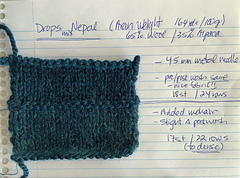 Drops Nepal (Aran Weight 164yds/100g)
mix 65% Wool / 35% Alpaca
- 4.5 mm metal needle
- pre/post wash same
- nice fabric!!
18st / 24 rows
- Added mohair
- Slight Δ postwash
17st / 22 rows
(to dense)